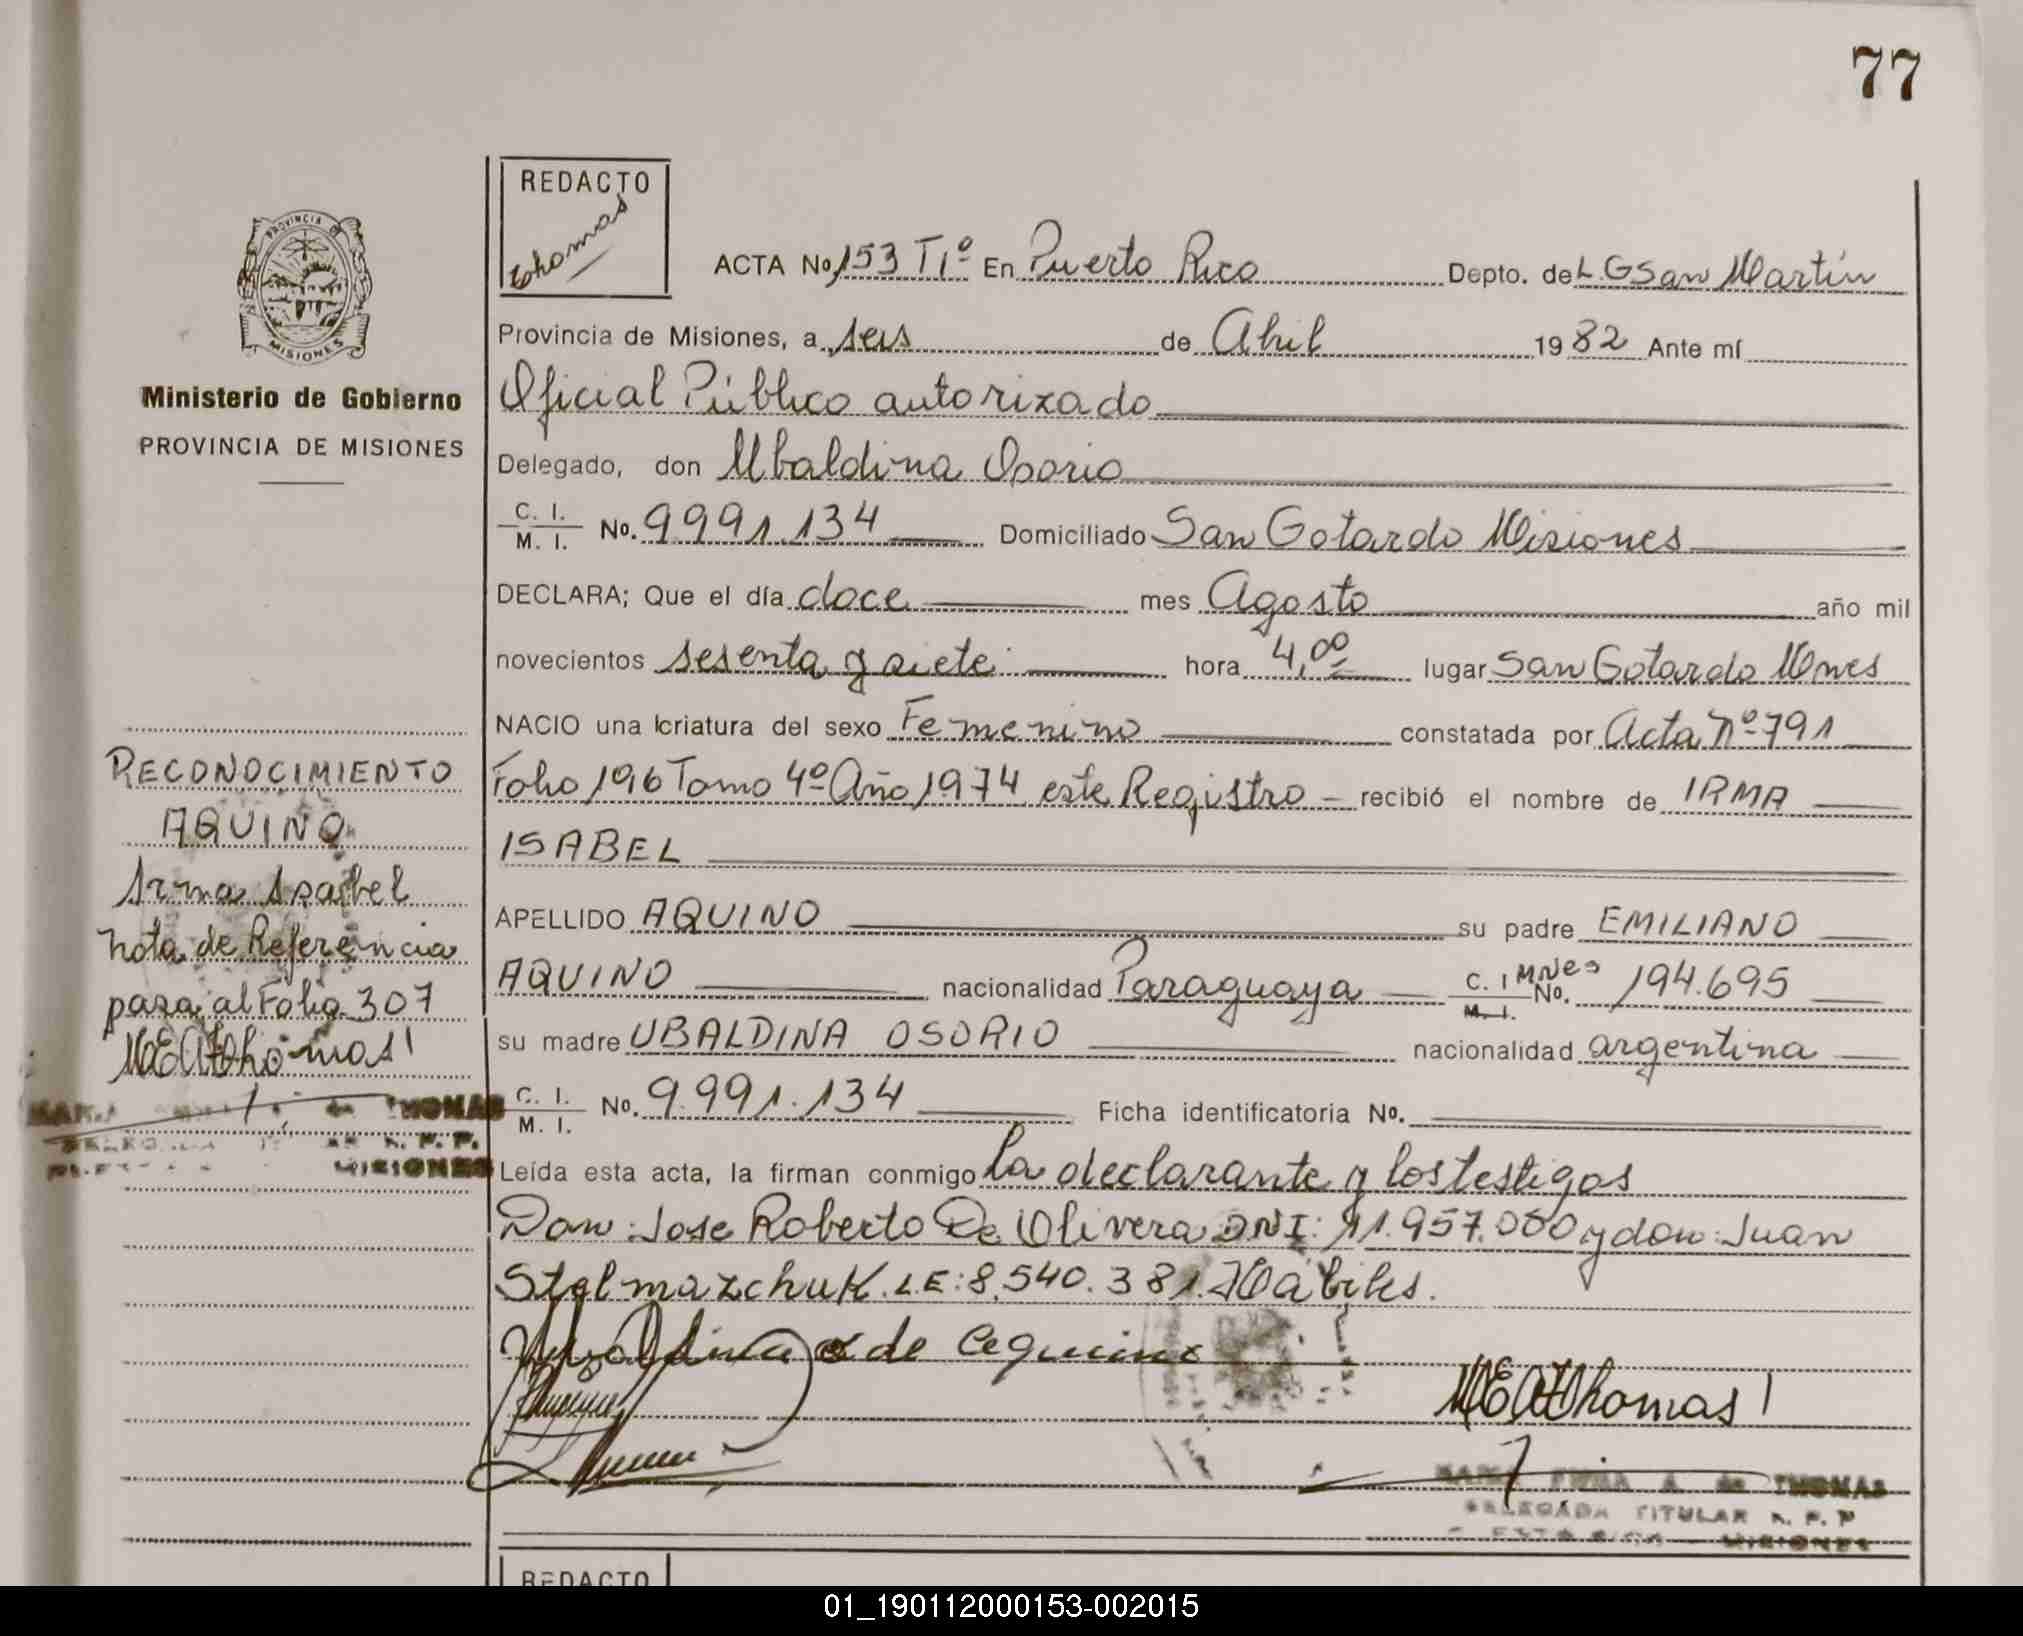 77
REDACTO
Thomas
ACTA No. 153 T1º En Puerto Rico Depto. de L G San Martín
Provincia de Misiones, a seis de Abril 1982 Ante mí
Oficial Público autorizado
Delegado, don Ubaldina Osorio
C. I. M. I. No. 9991.134 Domiciliado San Gotardo Misiones
DECLARA; Que el día doce mes Agosto año mil
novecientos sesenta y siete hora 4,00 lugar San Gotardo Mnes
NACIO una criatura del sexo Femenino constatada por Acta Nº 791
Folio 196 Tomo 4º Año 1974 este Registro recibió el nombre de IRMA
ISABEL
APELLIDO AQUINO su padre EMILIANO
AQUINO nacionalidad Paraguaya C. I. M. I. Mnes No. 194.695
su madre UBALDINA OSORIO nacionalidad argentina
C. I. M. I. No. 9.991.134 Ficha identificatoria No.
Leída esta acta, la firman conmigo la declarante y los testigos
Don: Jose Roberto De Olivera DNI: 11.957.080 y don: Juan
Stelmazchuk. L.E: 8.540.381. Hábiles.
de Aquino
MEAThomas
MARIA A. de THOMAS
DELEGADA TITULAR R. P. P
MISIONES
PROVINCIA DE MISIONES
Ministerio de Gobierno
PROVINCIA DE MISIONES
RECONOCIMIENTO
AQUINO
Irma Isabel
Nota de Referencia
pasa al Folio 307
MEAThomas
MARIA de THOMAS
R. P. P.
MISIONES
REDACTO
01_190112000153-002015